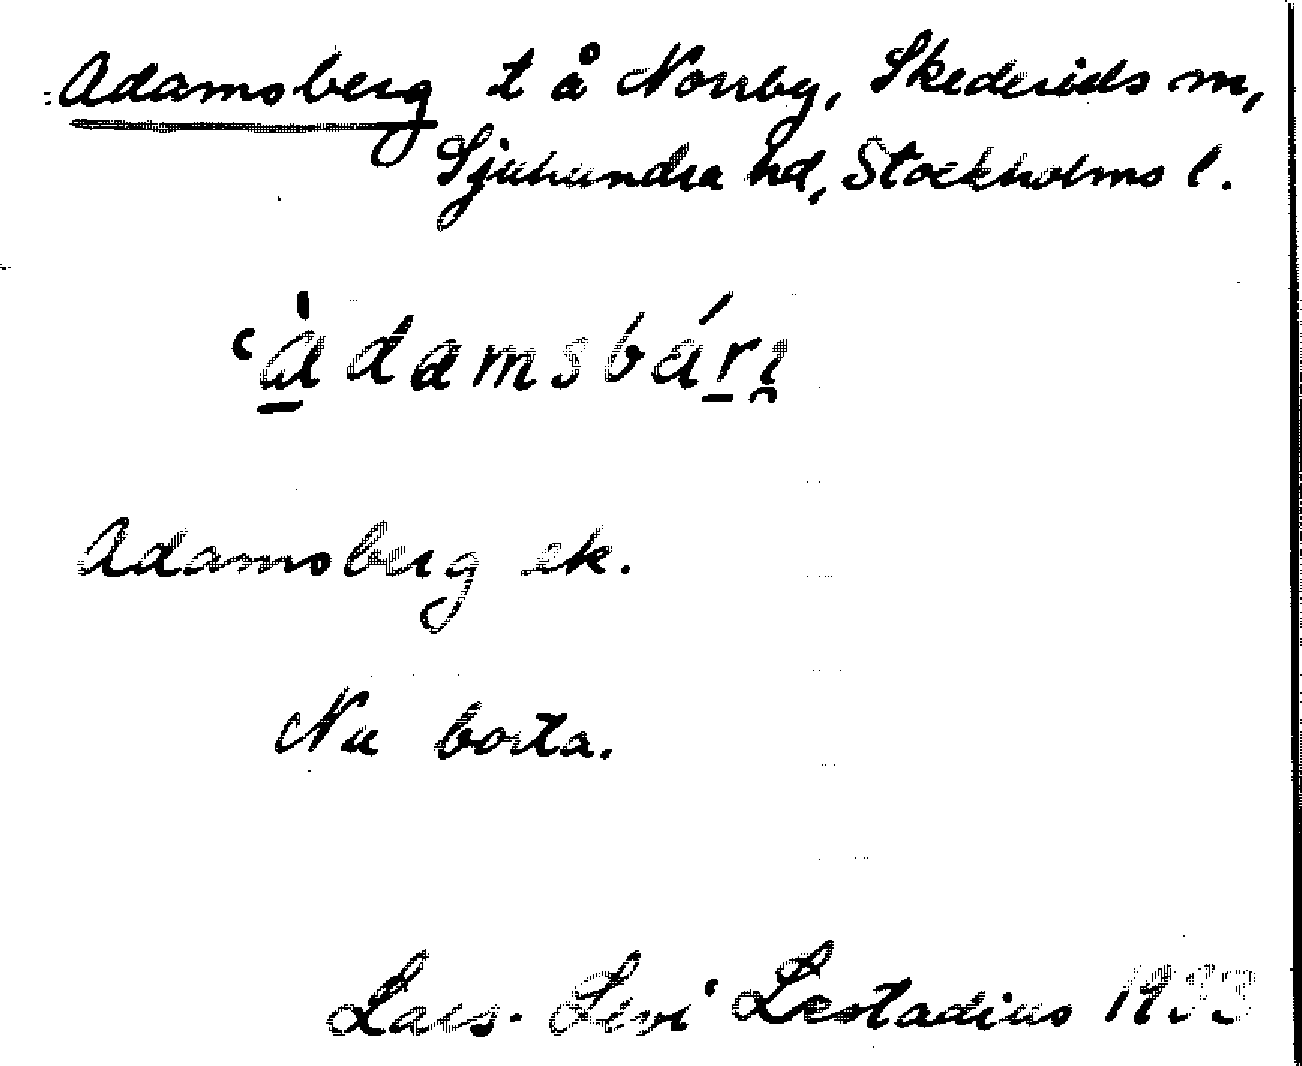 Adamsberg t å Norrby, Skederids sn,
Sjuhundra hd, Stockholms l.
'àdamsbárj
Adamsberg ek.
Nu borta.
Lars-Levi Læstadius 1933